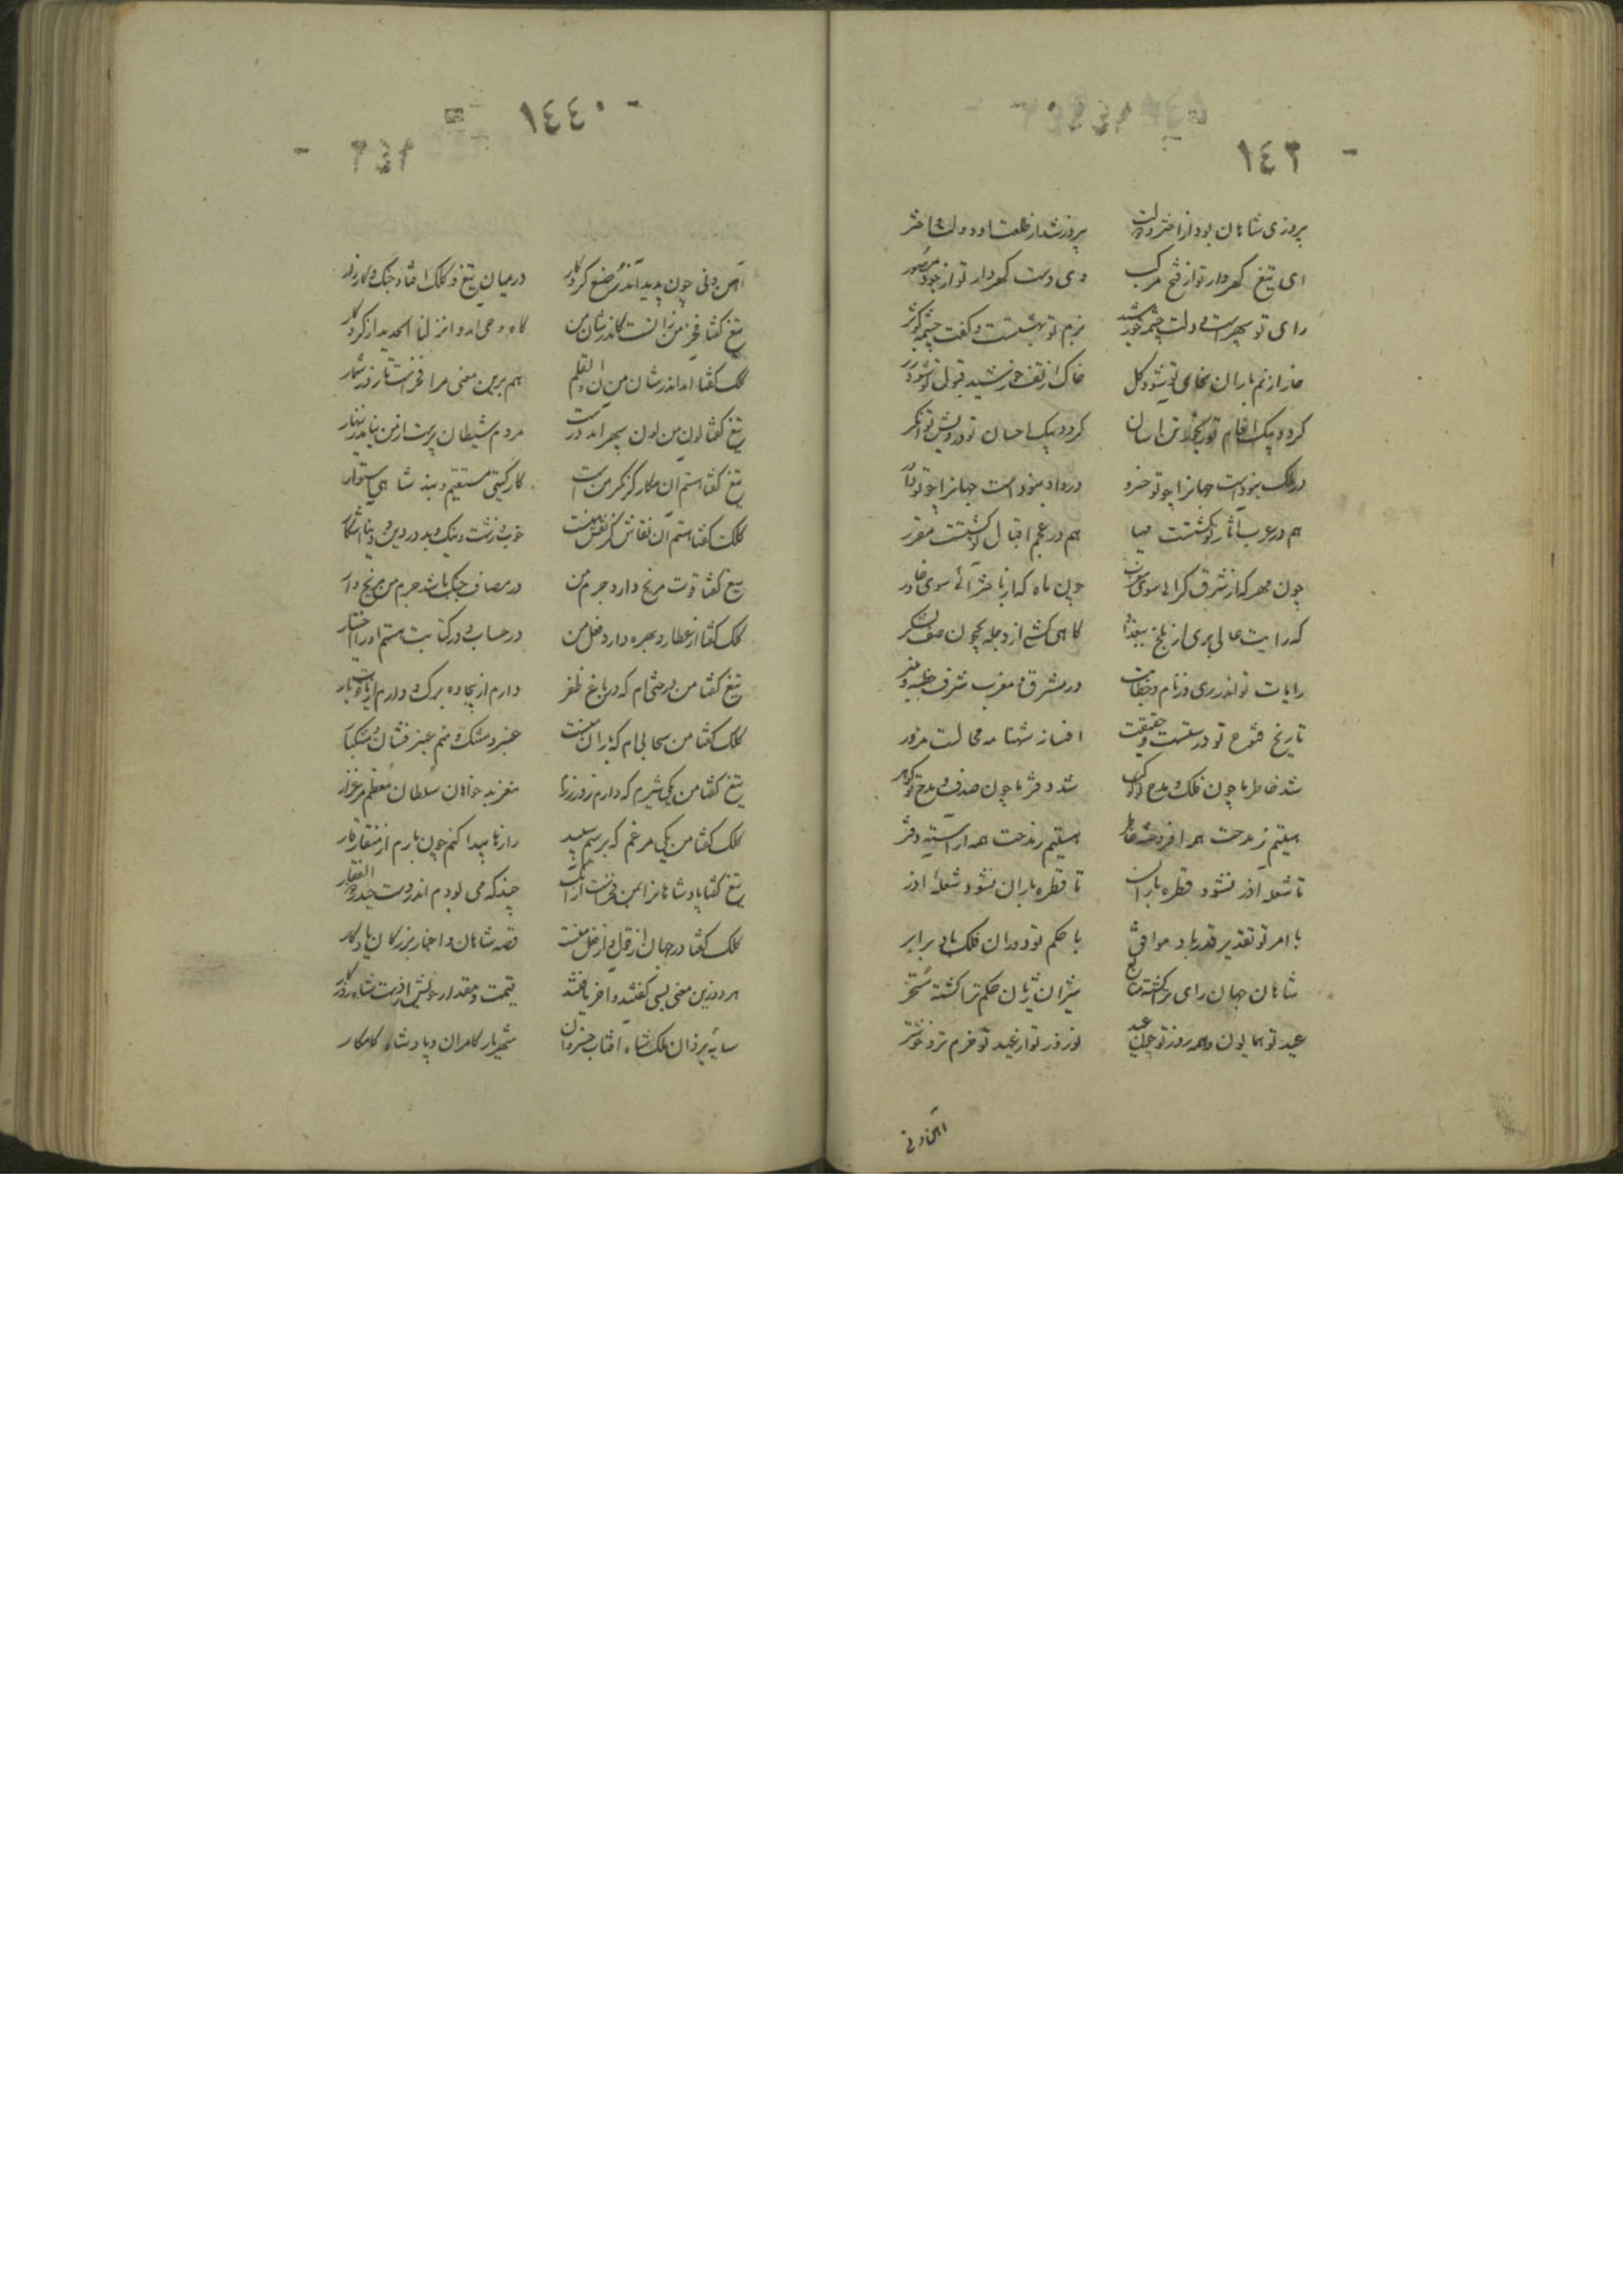 ١٤٣
پیروزی شاهان بود از اختر و دولت پیروز شد از طلعت او دولت و اختر
ای تیغ گهردار تو از فتح مرکب وی دست گهربار تو از جود مصور
رای تو سپهرست و دلت چشمه خورشید بزم تو بهشتست و کفت چشمه کوثر
خار از نم باران سخای تو شود گل خاک از تف خورشید قبول تو شود زر
گردد بیک انعام تو آسان گردد بیک احسان تو درویش توانگر
در ملک نبودست جهانرا چو تو خسرو در داد نبودست جهانرا چو تو داور
هم در عرب آثار تو گشتست مهیا هم در عجم اقبال تو گشتست مقرر
چون مهر که از شرق گرائی سوی مغرب چون ماه که از باختر آئی سوی خاور
که رایت عالی بری از بلخ ببغداد گاهی کشی از دجله بجیحون صف لشکر
رایات تو اندر ری و نام و خطابت در مشرق و مغرب شرف خطبه و منبر
تاریخ فتوح تو درستست و حقیقت افسانه شهنامه محالست مزور
شد خاطر ما چون فلک و مدح تو کوکب شد دفتر ما چون صدف و مدح تو گوهر
هستیم ز مدحت همه افروخته خاطر هستیم ز مدحت همه آراسته دفتر
تا شعله آذر نشود قطره باران تا قطره باران نشود شعله آذر
با امر تو تقدیر قدر باد موافق با حکم تو دوران فلک باد برابر
شاهان جهان رای ترا گشته متابع شیران ژیان حکم ترا گشته مسخر
عید تو همایون و همه روز تو چون عید نوروز تو از عید تو خرم‌تر و خوشتر
آهن و نی
١٤٤
آهن و نی چون پدید آمد ز صنع کردگار در میان تیغ و کلک افتاد جنگ و کارزار
تیغ گفتا فخر من زانست کاندر شان من گاه وحی آمد و انزلنا الحدید از کردگار
کلک گفتا آمد اندر شان من ن و القلم هم برین معنی مرا فخرست تا روز شمار
تیغ گفتا لون من لون سپهر آمد درست مردم شیطان پرست از من نیابد زینهار
تیغ گفتا هستم آن کز مکر من است کار گیتی مستقیم و بند شاهی استوار
کلک گفتا هستم آن نقاش کز نقش منست خوب و زشت و نیک و بد در دین و دنیا آشکار
تیغ گفتا قوت مریخ دارد جرم من در مصاف جنگ باشد جرم من مریخ وار
کلک گفتا از عطارد بهره دارد فعل من در حساب و در کتابت هستم او را اختیار
تیغ گفتا من درختی‌ام که در باغ ظفر دارم از بیجاده برگ و دارم از یاقوت بار
کلک گفتا من سحابی‌ام که باران منست عنبر و مشک و منم عنبر فشان و مشکبار
تیغ گفتا من یکی شیرم که دارم روز رزم مغز بدخواهان سلطان معظم مرغزار
کلک گفتا من یکی مرغم که بر سیم سپید رازها پیدا کنم چون بارم از منقار قار
تیغ گفتا پادشاهانرا بمن فخرست ازآنک چندگه می بودم اندر دست حیدر ذوالفقار
کلک گفتا در جهان از قول و از فعل منست قصه شاهان و اخبار بزرگان یادگار
هر دو زین معنی بسی گفتند و آخر یافتند قیمت و مقدار خویش از دست شاه روزگار
سایه یزدان ملک شاه آفتاب خسروان شهریار کامران و پادشاه کامکار